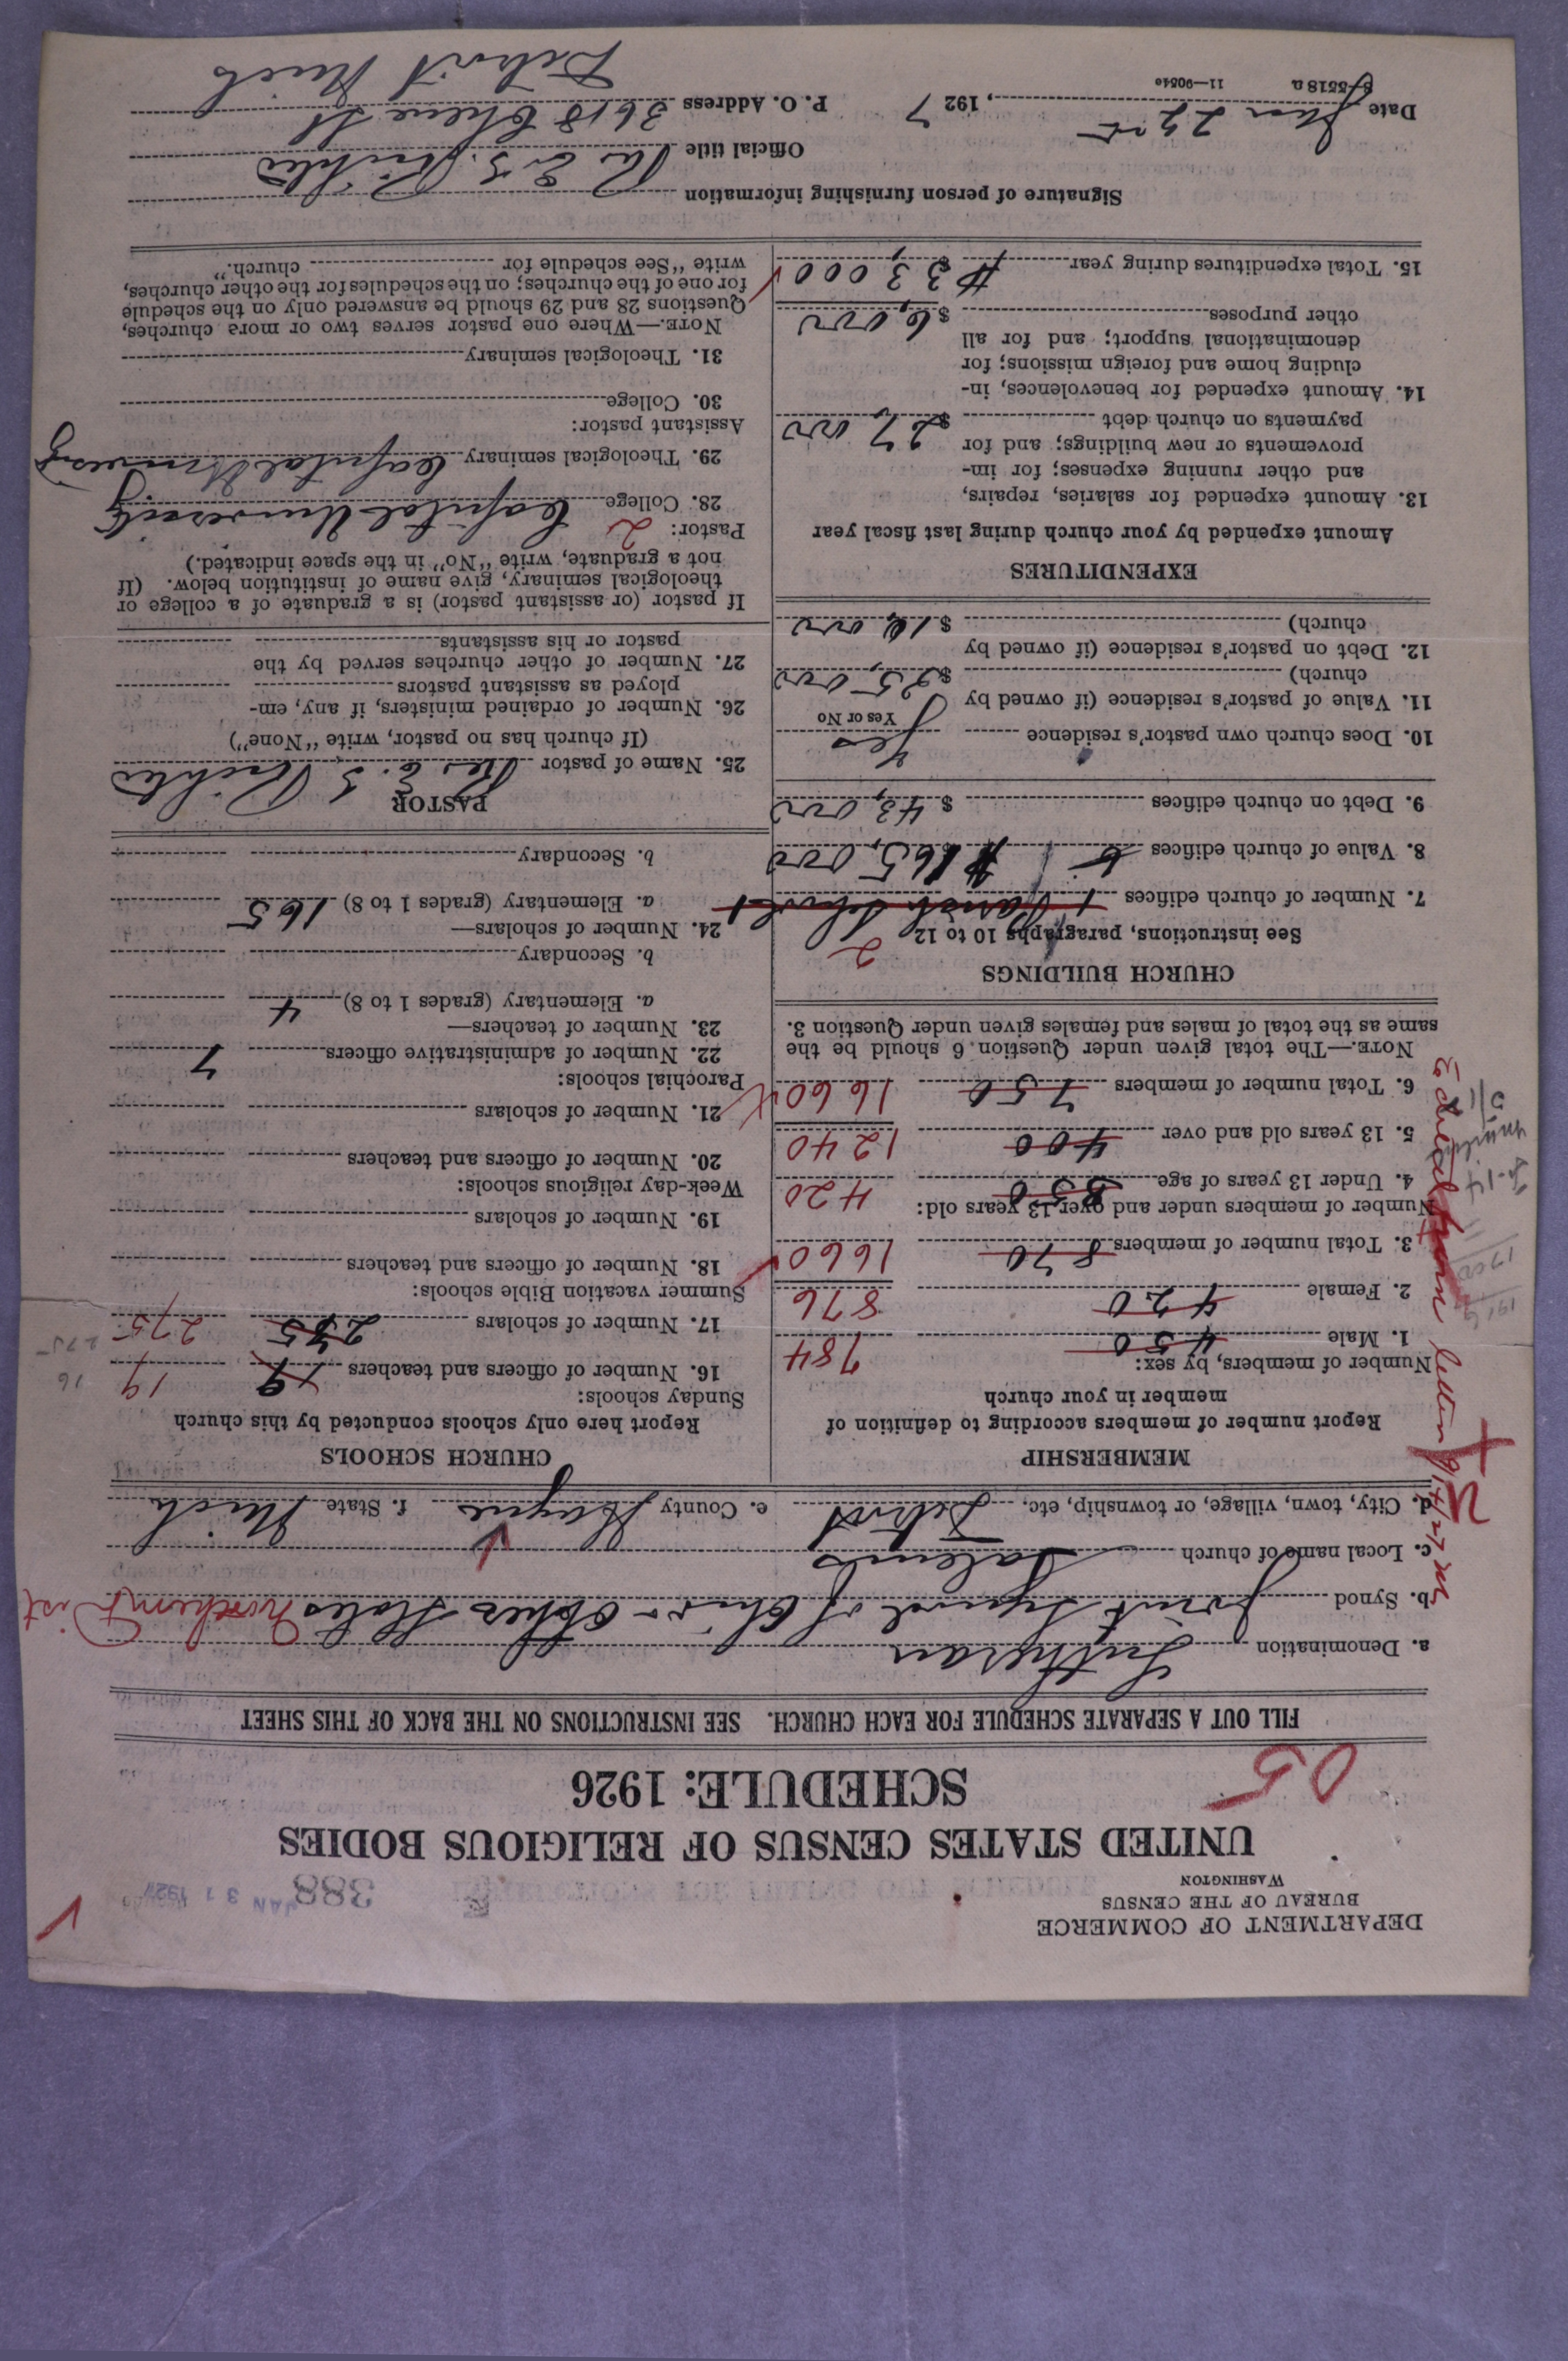 DEPARTMENT OF COMMERCE
BUREAU OF THE CENSUS
WASHINGTON
388
JAN 31 1927
UNITED STATES CENSUS OF RELIGIOUS BODIES
SCHEDULE: 1926
05
FILL OUT A SEPARATE SCHEDULE FOR EACH CHURCH. SEE INSTRUCTIONS ON THE BACK OF THIS SHEET
a. Denomination Lutheran
b. Synod Joint Synod of Ohio & Other States Northern Dist
c. Local name of church Salems
d. City, town, village, or township, etc, Detroit e. County Wayne f. State Mich
MEMBERSHIP
Report number of members according to definition of
member in your church
Number of members, by sex:
1. Male 450 784
2. Female 420 876
3. Total number of members 870 1660
Number of members under and over 13 years old:
4. Under 13 years of age 350 420
5. 13 years old and over 400 1240
6. Total number of members 750 1660
NOTE.—The total given under Question 6 should be the
same as the total of males and females given under Question 3.
CHURCH BUILDINGS
See instructions, paragraphs 10 to 12 2
7. Number of church edifices 1 Parish School 1
8. Value of church edifices $165,000
9. Debt on church edifices $43,000
10. Does church own pastor's residence Yes
Yes or No
11. Value of pastor's residence (if owned by
church) $25,000
12. Debt on pastor's residence (if owned by
church) $16,000
EXPENDITURES
Amount expended by your church during last fiscal year
13. Amount expended for salaries, repairs,
and other running expenses; for im-
provements or new buildings; and for
payments on church debt $27,000
14. Amount expended for benevolences, in-
cluding home and foreign missions; for
denominational support; and for all
other purposes $6,000
15. Total expenditures during year $33,000
CHURCH SCHOOLS
Report here only schools conducted by this church
Sunday schools:
16. Number of officers and teachers 19 19
17. Number of scholars 275 275
Summer vacation Bible schools:
18. Number of officers and teachers
19. Number of scholars
Week-day religious schools:
20. Number of officers and teachers
21. Number of scholars
Parochial schools:
22. Number of administrative officers 7
23. Number of teachers—
a. Elementary (grades 1 to 8) 4
b. Secondary
24. Number of scholars—
a. Elementary (grades 1 to 8) 165
b. Secondary
PASTOR
25. Name of pastor Rev E. S. Richter
(If church has no pastor, write "None")
26. Number of ordained ministers, if any, em-
ployed as assistant pastors
27. Number of other churches served by the
pastor or his assistants
If pastor (or assistant pastor) is a graduate of a college or
theological seminary, give name of institution below. (If
not a graduate, write "No" in the space indicated.)
Pastor: 2
28. College Capital University
29. Theological seminary Capital University
Assistant pastor:
30. College
31. Theological seminary
NOTE.—Where one pastor serves two or more churches,
Questions 28 and 29 should be answered only on the schedule
for one of the churches; on the schedules for the other churches,
write "See schedule for church."
Signature of person furnishing information Rev E. S. Richter
Official title
Date Jan 22nd, 1927 P. O. Address 3618 Chene St
Detroit Mich
8-5518 a 11—9054e